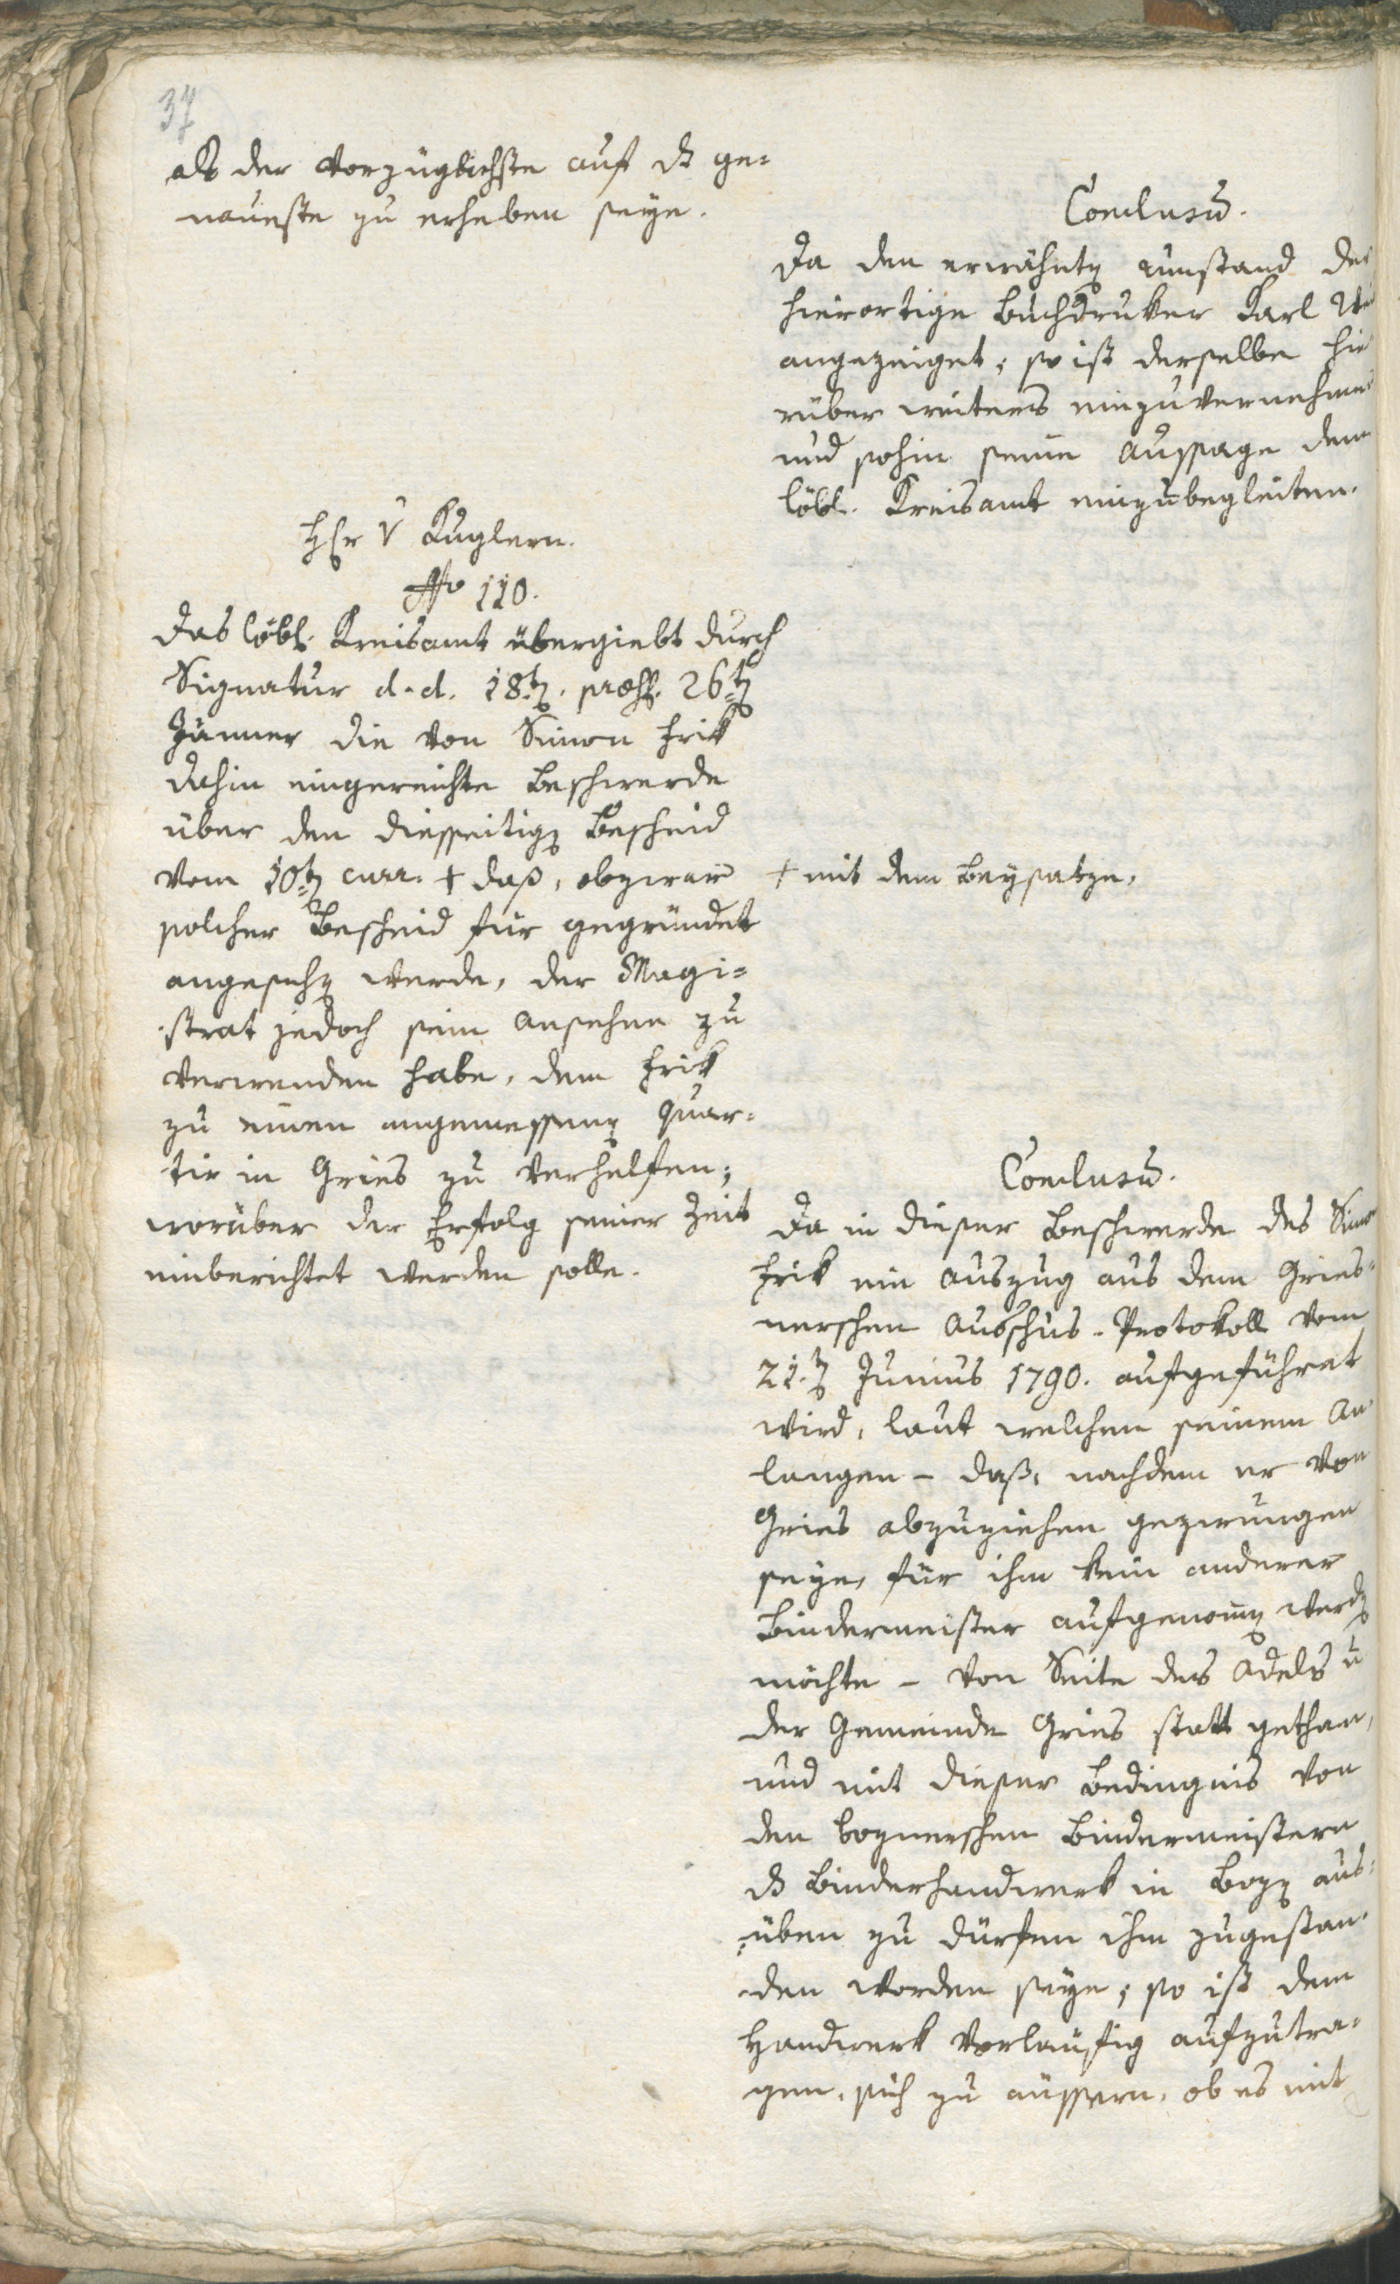 37
als der vorzüglichste auf ds ge-
naueste zu erheben seye.
Conclusū.
Da den erwähntē umstand der
hierortige Buchdruker Karl
angezeiget; so ist derselbe hie
rüber weiters einzuvernehmen
und sohin seine Aussage dem
löbl. Kreisamt einzubegleiten.
Hr v Kuglern.
No 110.
Das löbl. Kreisamt übergiebt durch
Signatur d. d. 18tē. præs. 26tē
Jänner die von Simon Frik
dahin eingereichte Beschwerde
über den diesseitigē Bescheid
vom 10tē curr. + daß, obzwar
solcher Bescheid für gegründet
angesehē werde, der Magi-
strat jedoch sein Ansehen zu
verwenden habe, dem Frik
zu einen angemessenē Quar-
tir in Gries zu verhelfen;
worüber der Erfolg seiner Zeit
einberichtet werden solle.
+ mit dem Beysatze,
Conclusū.
Da in dieser Beschwerde des Simon
Frik ein Auszug aus dem Gries-
nerschen Ausschus-Protokoll vom
21.tē Junius 1790. aufgeführet
wird, laut welchem seinem An-
langen – daß, nachdem er von
Gries abzuziehen gezwungen
seye, für ihm kein anderer
Bindermeister aufgenom̄ē werdē
möchte – von Seite des Adels u
der Gemeinde Gries statt gethan,
und mit dieser Bedingnis von
den boznerschen Bindermeistern
ds Binderhandwerk in Bozē aus-
üben zu dürfen ihm zugestan-
den worden seye; so ist dem
Handwerk vorläufig aufzutra-
gen, sich zu äussern, ob es mit